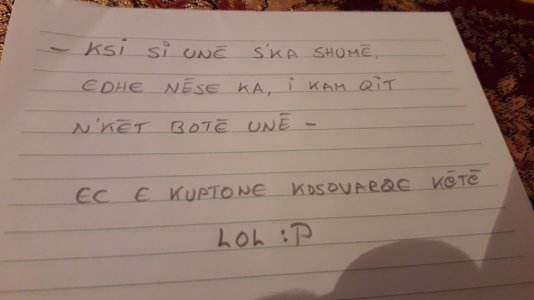 - KSI SI UNË S'KA SHUMË,
EDHE NËSE KA, I KAM QIT
N'KËT BOTË UNË -
EC E KUPTONE KOSOVARQE KËTË
LOL :P